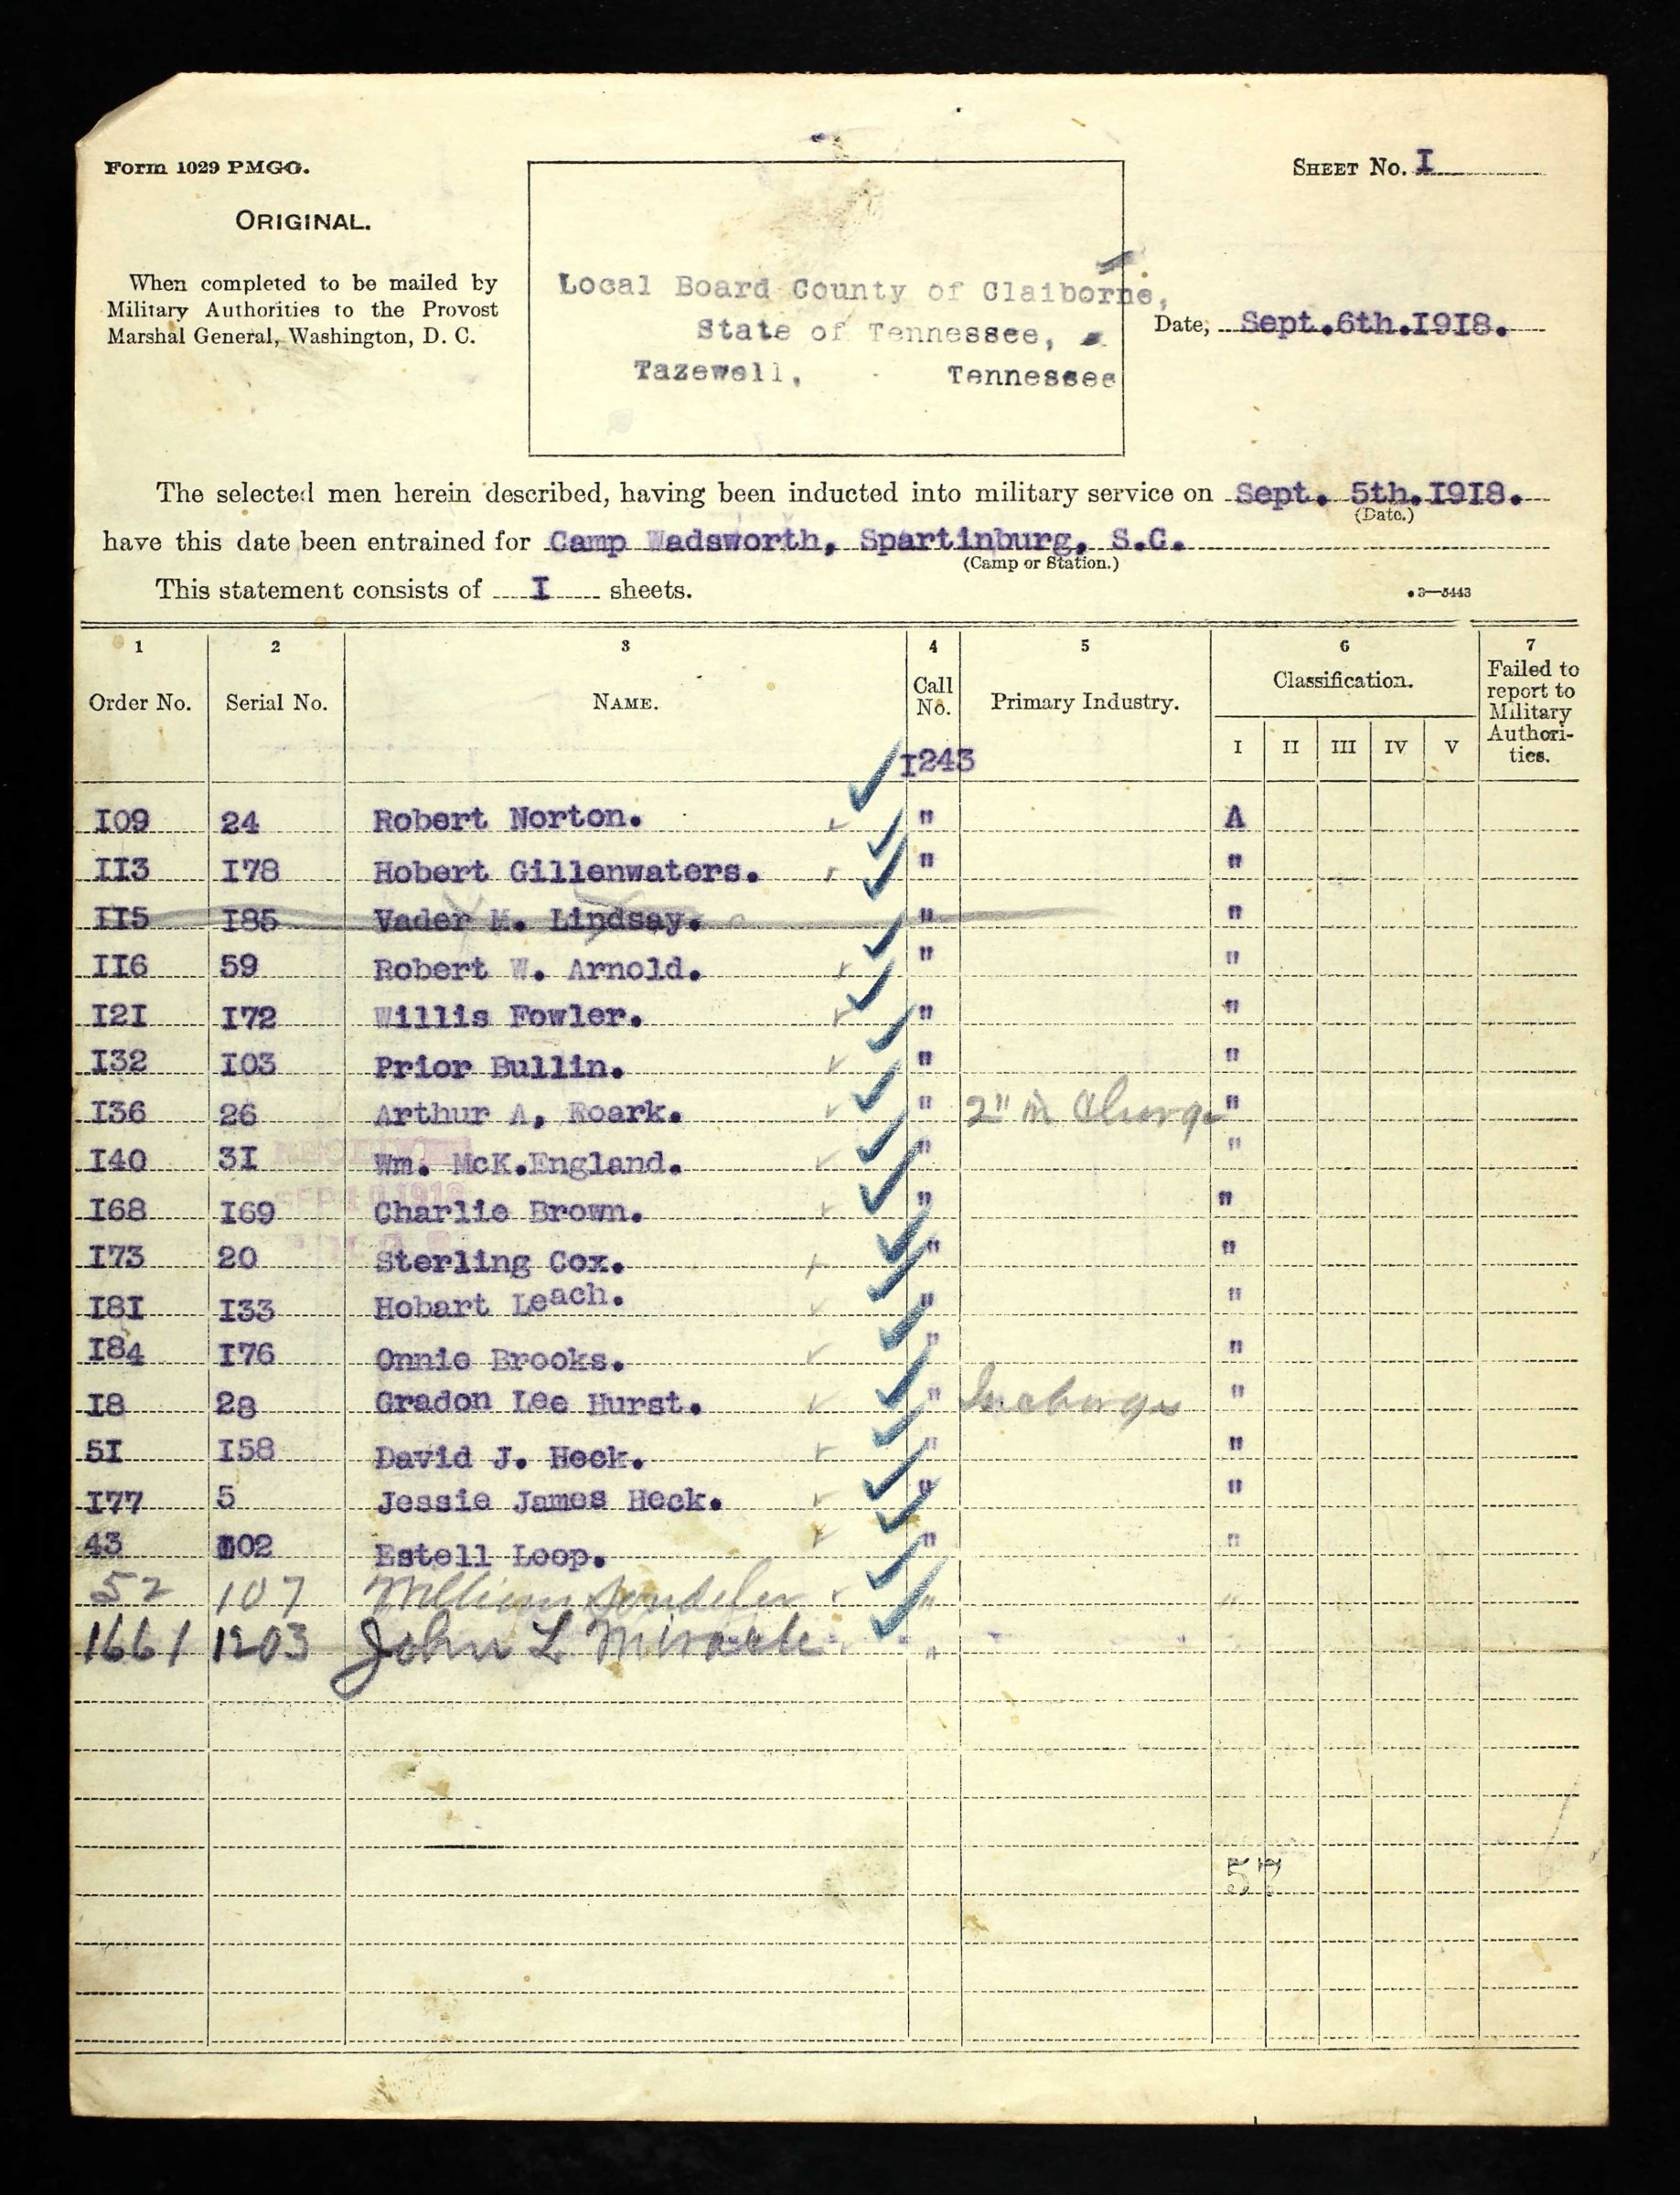 Form 1029 PMGO.
SHEET NO. I
ORIGINAL.
When completed to be mailed by
Military Authorities to the Provost
Marshal General, Washington, D. C.
Local Board County of Claiborne,
State of Tennessee,
Tazewell, Tennessee
Date, Sept.6th.I9I8.
The selected men herein described, having been inducted into military service on Sept. 5th.I9I8.
(Date.)
have this date been entrained for Camp Wadsworth, Spartinburg, S.C.
(Camp or Station.)
This statement consists of I sheets.
3—5443
1 2 3 4 5 6 7
Order No. Serial No. NAME. Call No. Primary Industry. Classification. Failed to report to Military Authori- ties.
I II III IV V
I243
I09 24 Robert Norton. " A
II3 I78 Hobert Gillenwaters. " "
II5 I85 Vader M. Lindsay. " "
II6 59 Robert W. Arnold. " "
I2I I72 Willis Fowler. " "
I32 I03 Prior Bullin. " "
I36 26 Arthur A, Roark. " 2" in Charge "
I40 3I Wm. McK.England. " "
I68 I69 Charlie Brown. " "
I73 20 Sterling Cox. " "
I8I I33 Hobart Leach. " "
I84 I76 Onnie Brooks. " "
I8 28 Gradon Lee Hurst. " Incharge "
5I I58 David J. Heck. " "
I77 5 Jessie James Heck. " "
43 I02 Estell Loop. " "
52 107 William " "
1661 1203 John L Miracle "
57